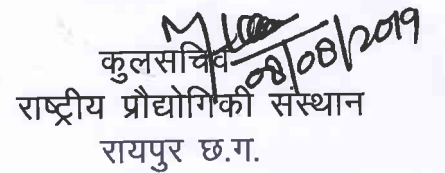 08/08/2019
कुलसचिव
राष्ट्रीय प्रौद्योगिकी संस्थान
रायपुर छ.ग.